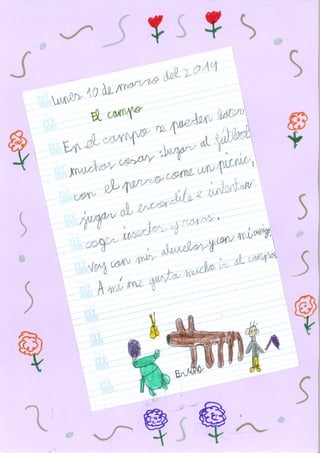 Lunes 10 de marzo del 2014
El campo
En el campo se pueden hacer
muchas cosas: Jugar al fútbol
con el perro come un picnic,
jugar al escondite e intentar
coger insectos y ranas.
Voy con mis abuelos y con mi amigo
A mí me gusta mucho ir al campo
Bruno